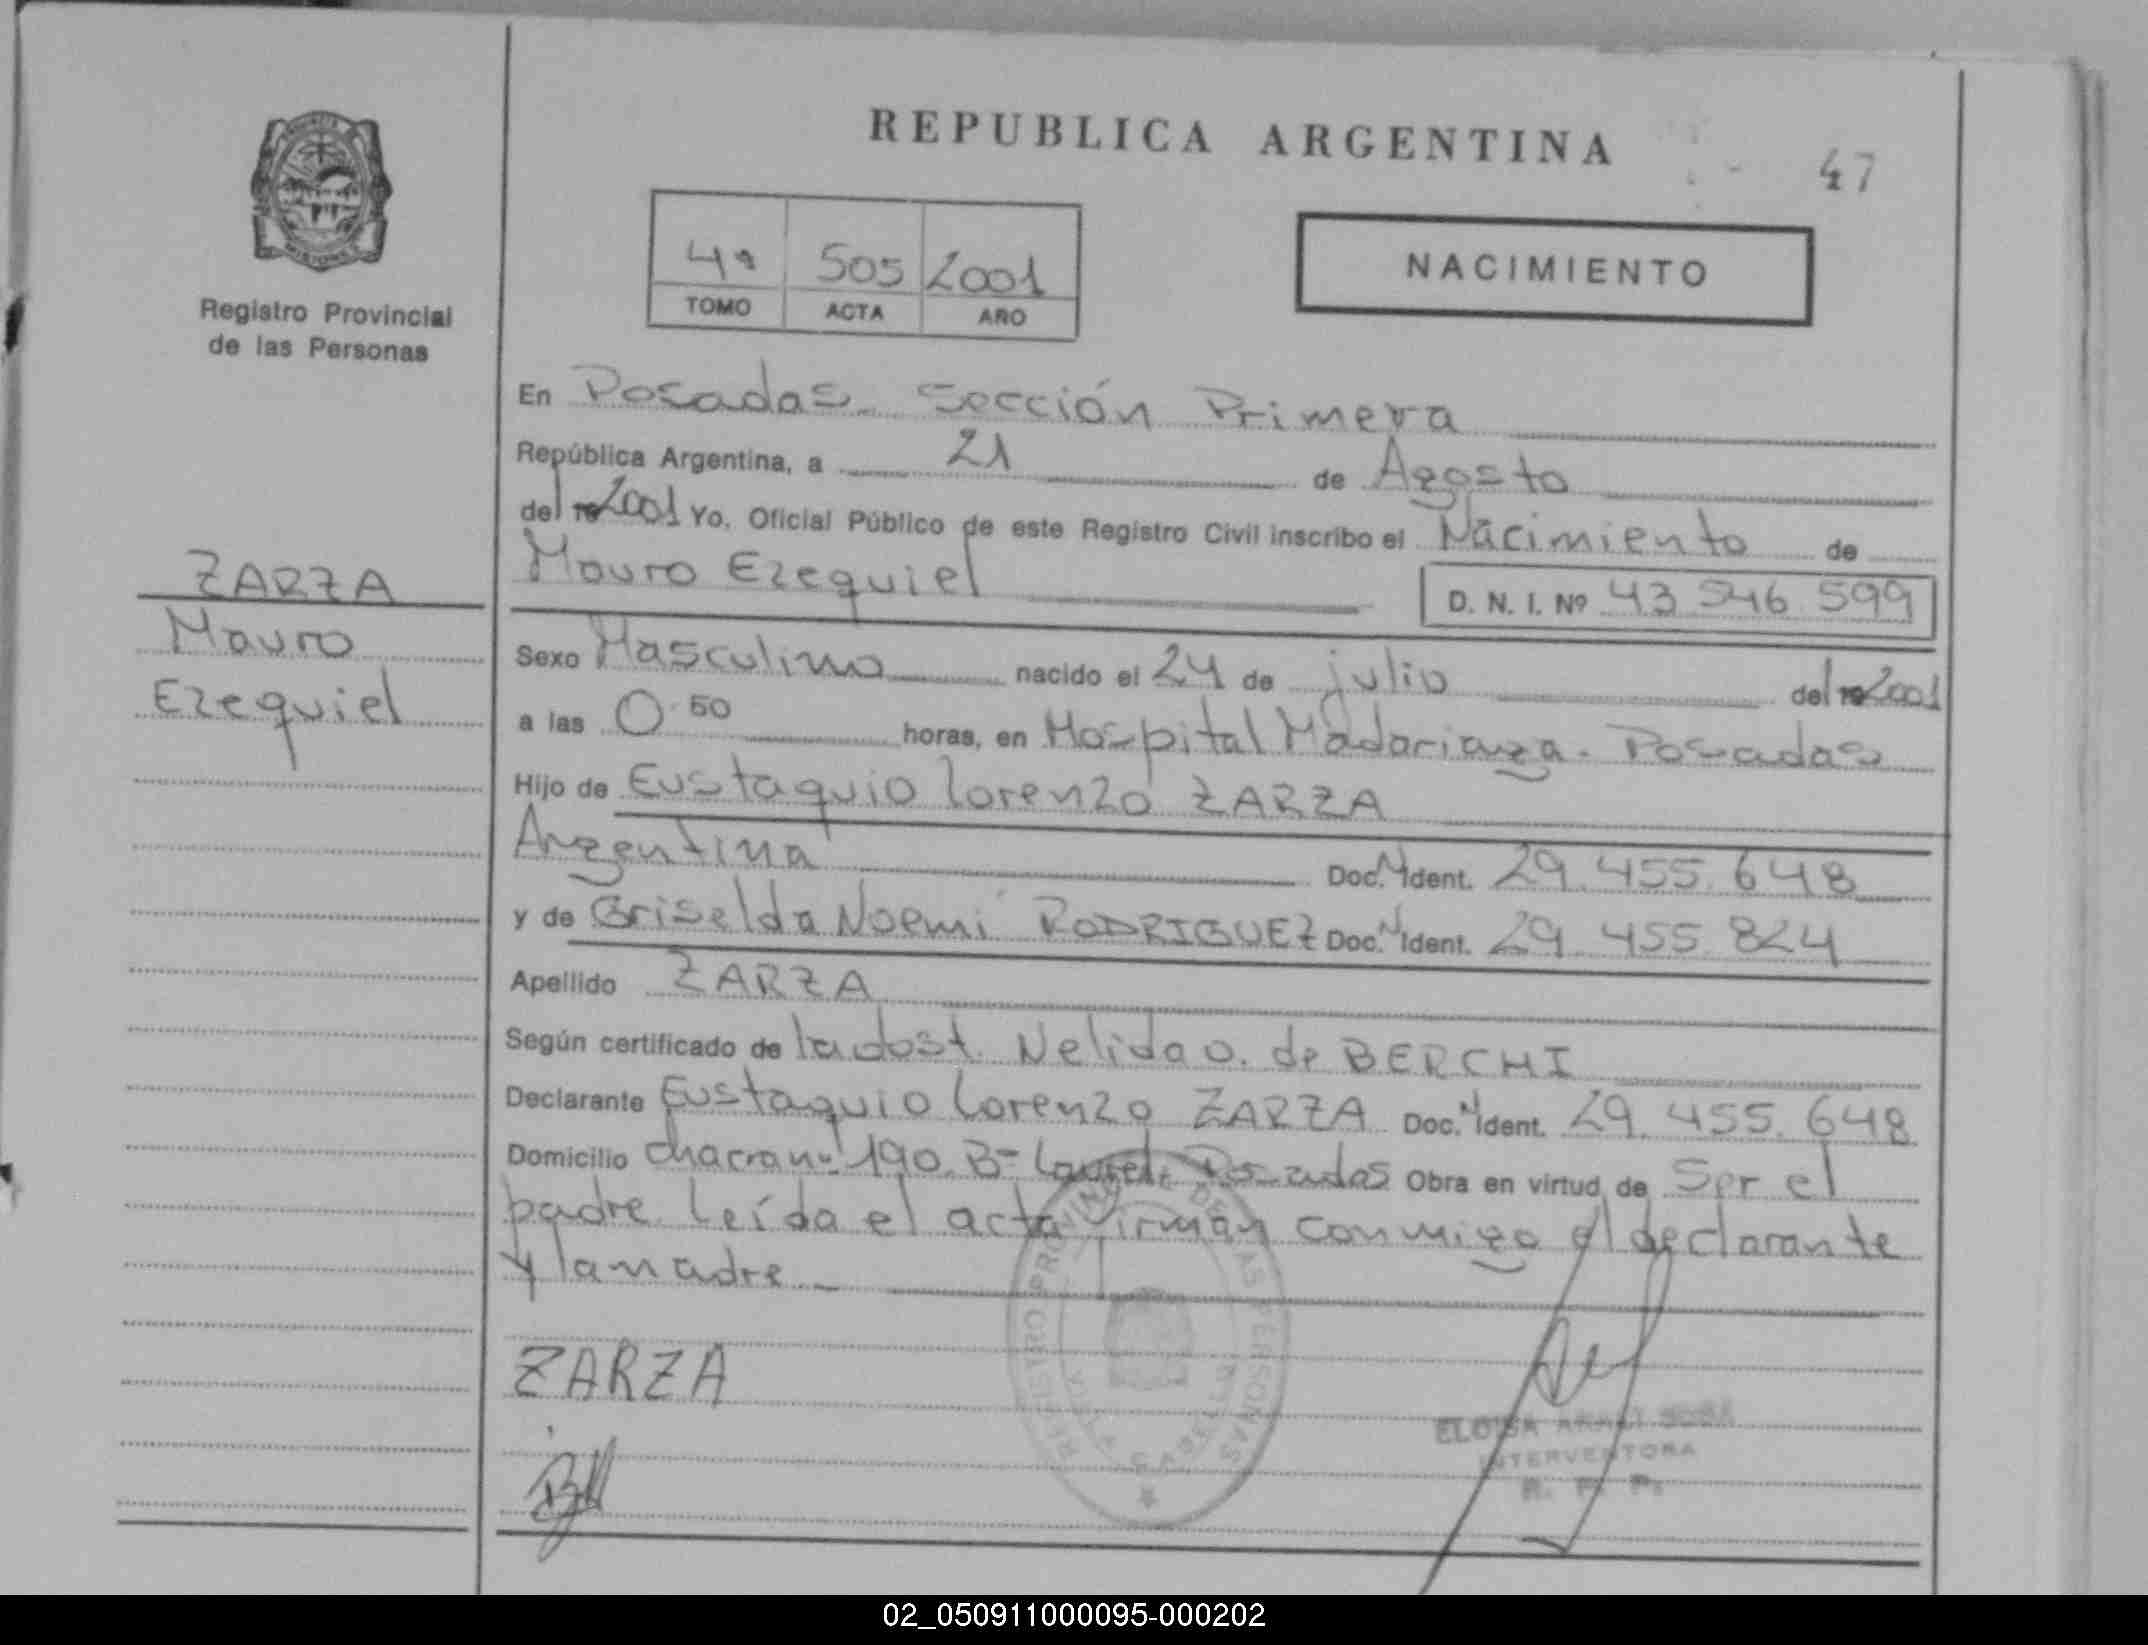 REPUBLICA ARGENTINA
47
4º 505 2001
TOMO ACTA AÑO
NACIMIENTO
Registro Provincial
de las Personas
ZARZA
Mauro
Ezequiel
En Posadas. Sección Primera
República Argentina, a 21 de Agosto
del 2001 Yo, Oficial Público de este Registro Civil inscribo el Nacimiento de
Mauro Ezequiel D. N. I. Nº 43 546 599
Sexo Masculino nacido el 24 de julio del 2001
a las 0.50 horas, en Hospital Madariaga. Posadas
Hijo de Eustaquio Lorenzo ZARZA
Argentina Doc. N. Ident. 29.455.648
y de Griselda Noemi RODRIGUEZ Doc. N. Ident. 29.455.824
Apellido ZARZA
Según certificado de la obst. Nelida O. de BERCHI
Declarante Eustaquio Lorenzo ZARZA Doc. N. Ident. 29.455.648
Domicilio chacra nº 190 Bº Laurel. Posadas Obra en virtud de Ser el
padre. Leída el acta firman conmigo el declarante
y la madre
ZARZA
REGISTRO PROVINCIAL DE LAS PERSONAS
INTERVENTORA
R. P. P.
02_050911000095-000202